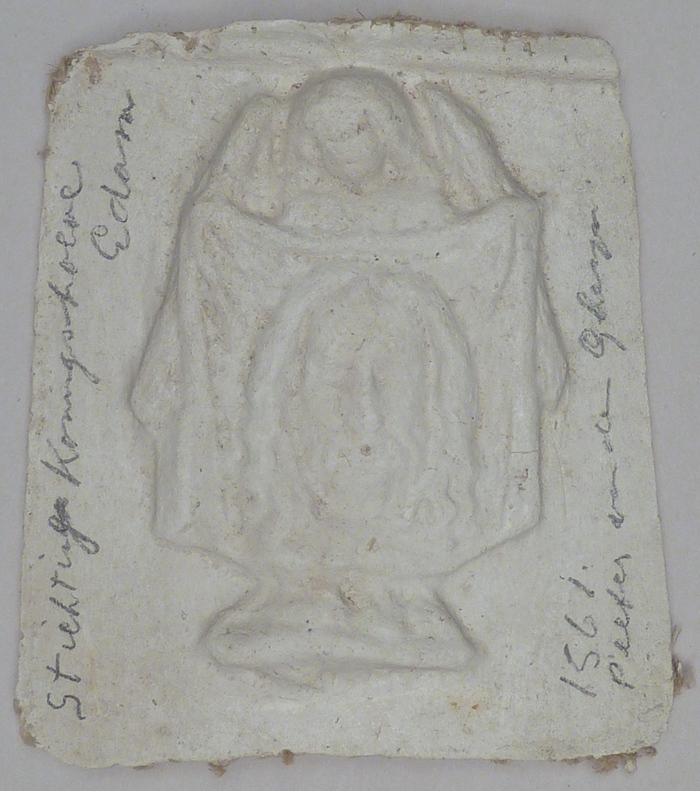 Stichting Koningshoeve
Edam
1561.
Peeter van den Gheyn.